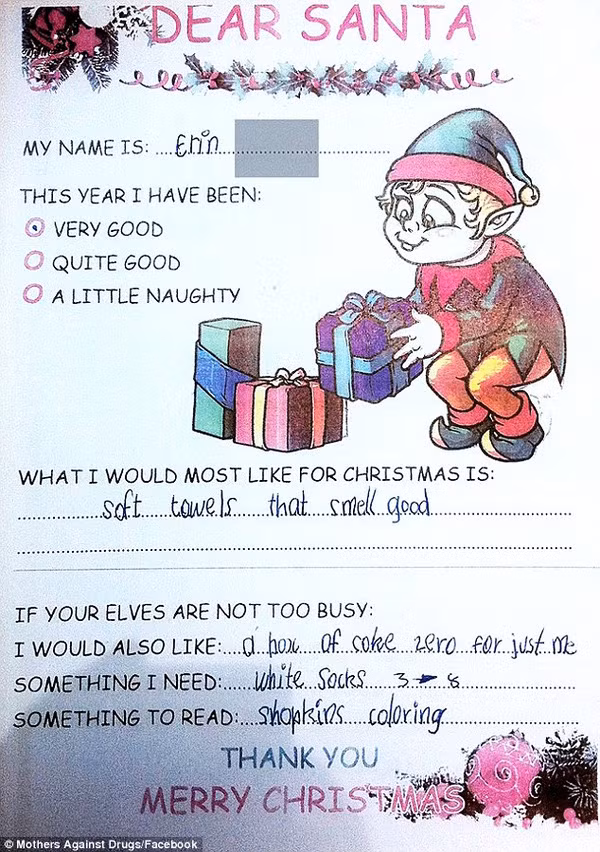 DEAR SANTA
MY NAME IS: Erin
THIS YEAR I HAVE BEEN:
VERY GOOD
QUITE GOOD
A LITTLE NAUGHTY
WHAT I WOULD MOST LIKE FOR CHRISTMAS IS:
soft towels that smell good
IF YOUR ELVES ARE NOT TOO BUSY:
I WOULD ALSO LIKE: a box of coke zero for just me
SOMETHING I NEED: White Socks 3 → 8
SOMETHING TO READ: Shopkins coloring
THANK YOU
MERRY CHRISTMAS
© Mothers Against Drugs/Facebook